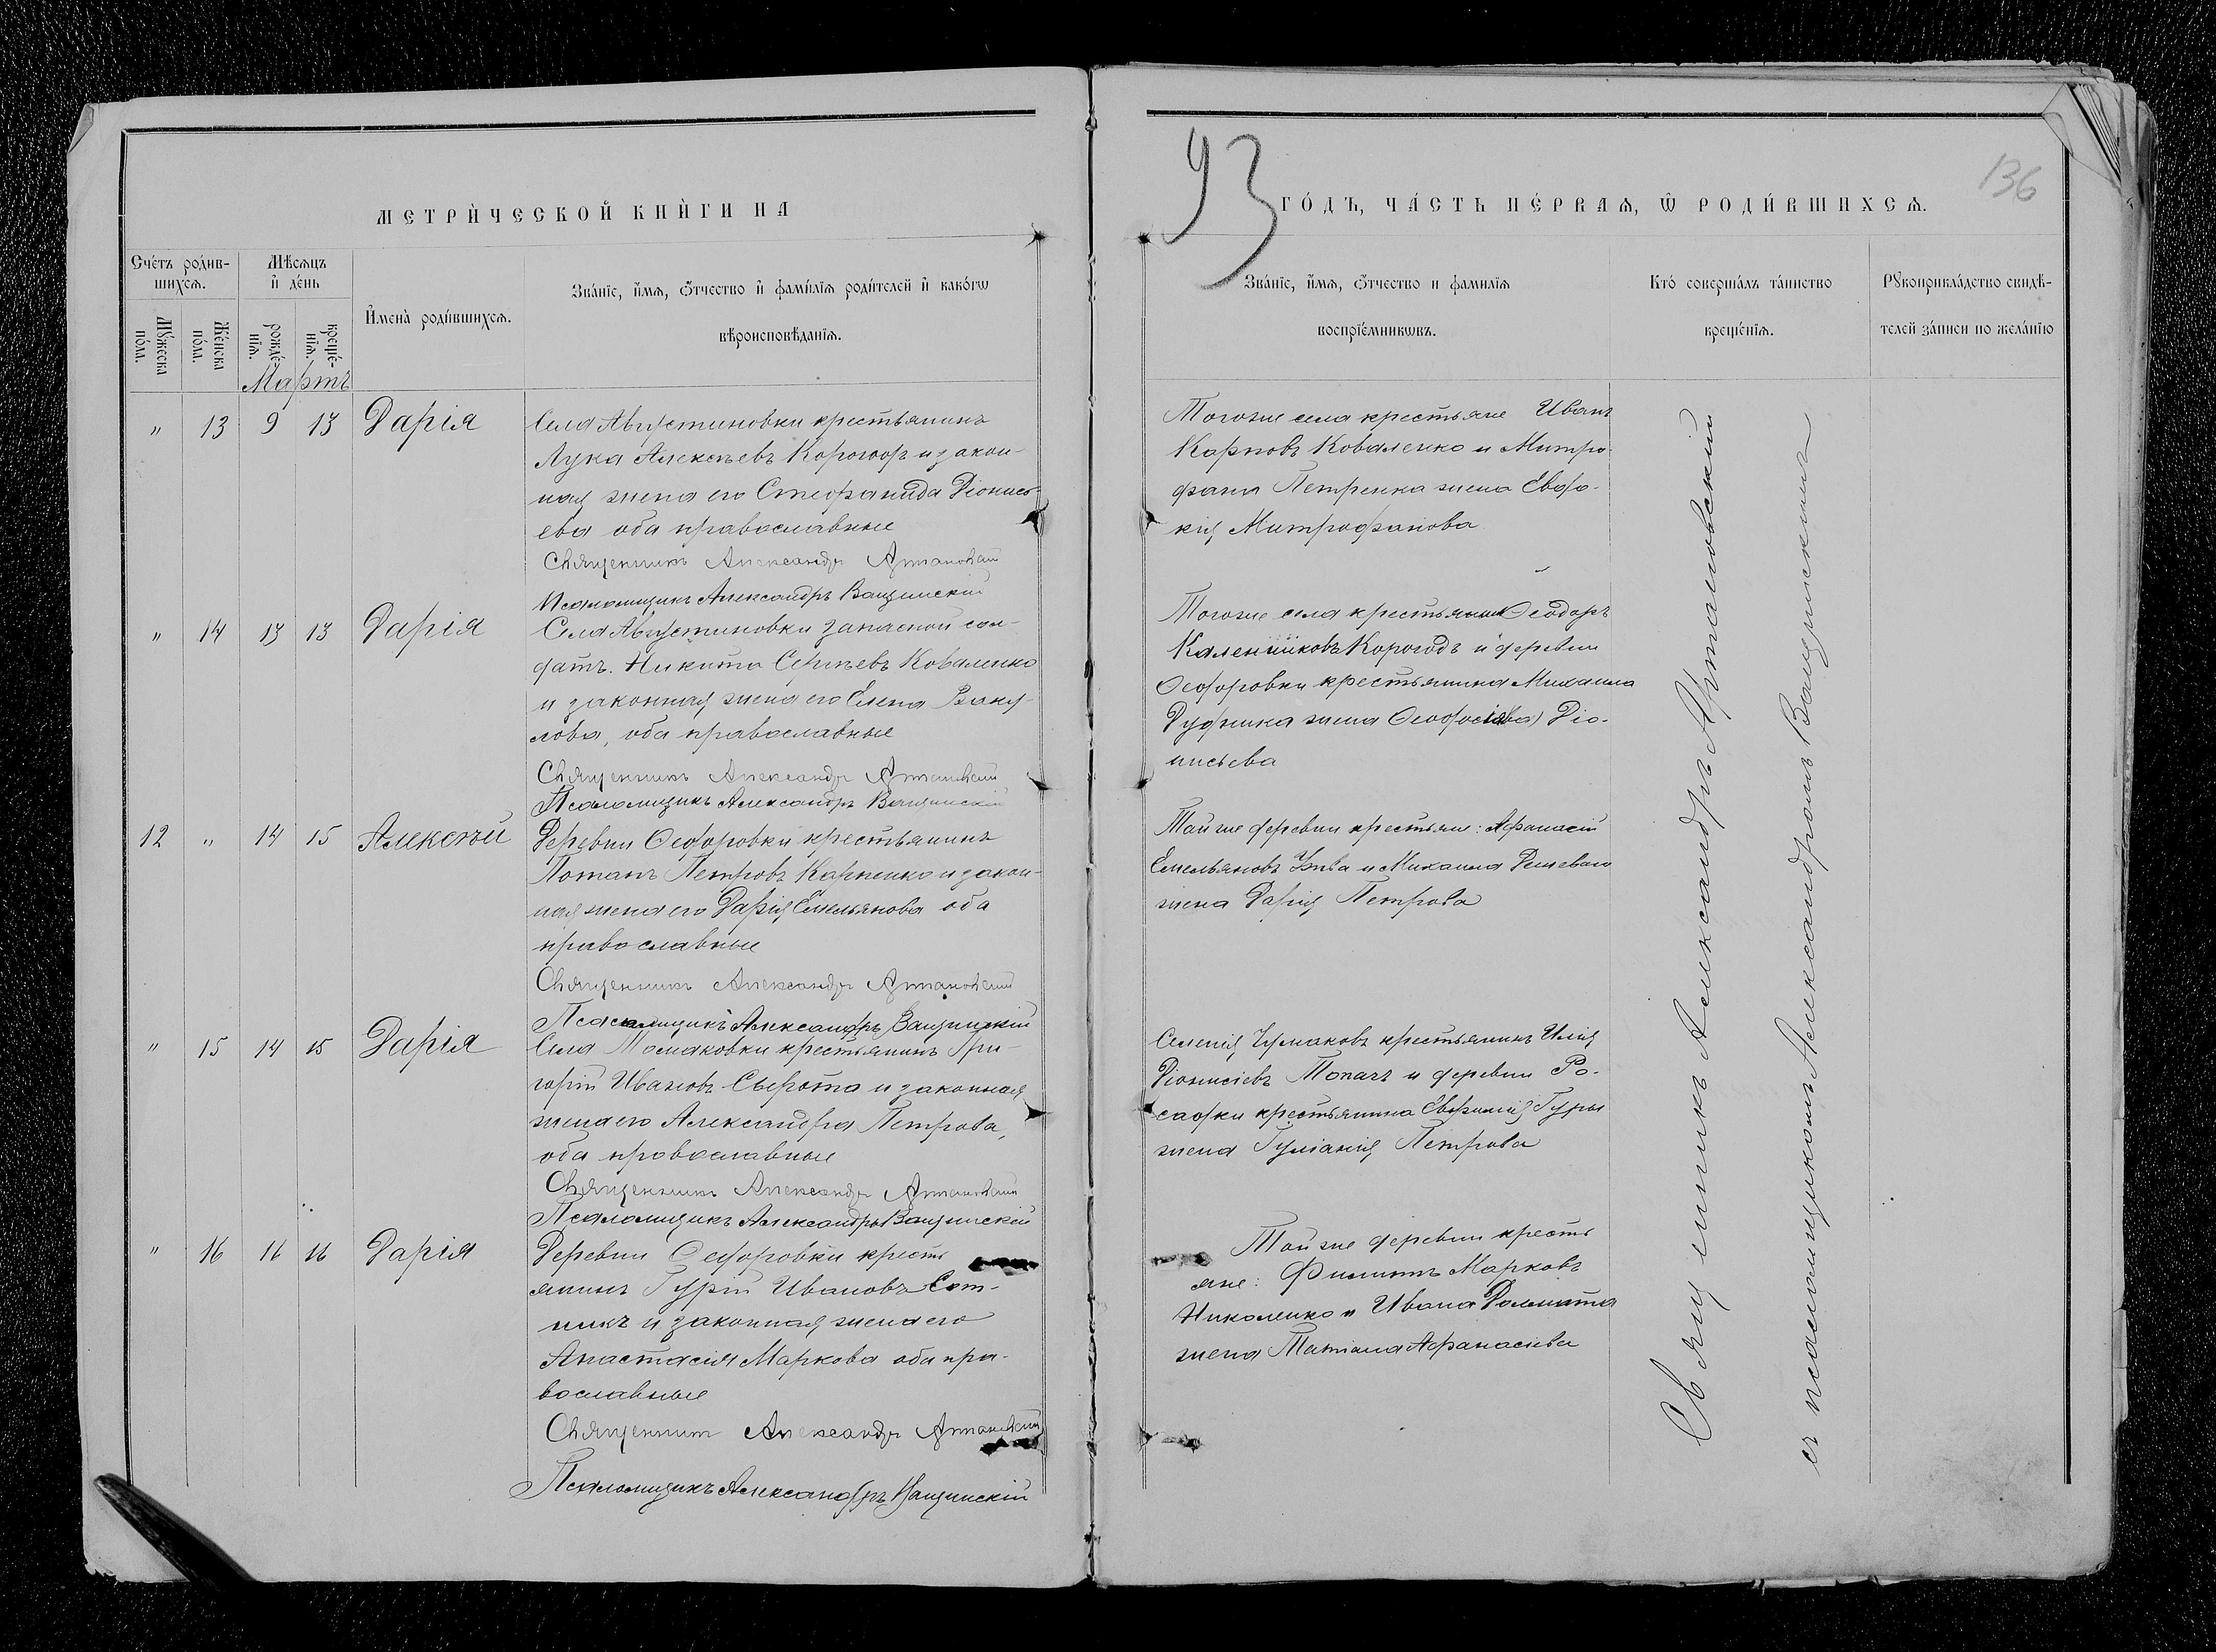 МЕТРИ́ЧЕСКОЙ КНИ́ГИ НА
93
ГО́ДЪ, ЧА́СТЬ ПЕ́РВАѦ, Ѡ҆ РОДИ́ВШИХСѦ.
136
Сче́тъ роди́в-
шихсѧ.
Мѣ́сѧцъ
и҆ де́нь
Мꙋ́жеска
по́ла.
Же́нска
по́ла.
рожде́-
нїѧ.
креще́-
нїѧ.
И҆мена̀ роди́вшихсѧ.
Зва́нїе, и҆́мѧ, ѻ҆́тчество и҆ фами́лїѧ роди́телей и҆ како́гѡ
вѣроисповѣ́данїѧ.
Зва́нїе, и҆́мѧ, ѻ҆́тчество и фамилїѧ
воспрїе́мникѡвъ.
Кто́ соверша́лъ та́инство
креще́нїѧ.
Рꙋкоприкла́дство свидѣ́-
телей за́писи по жела́нїю
Мартъ
" 13 9 13 Дарія
Села Августиновки крестьянинъ
Лука Алексѣевъ Корогодъ и закон-
ная жена его Стефанида Діонись-
ева оба православные
Священникъ Александръ Артановскій
Псаломщикъ Александръ Ващинскій
Тогоже села крестьяне Иванъ
Карповъ Коваленко и Митро-
фана Петренка жена Евдо-
кія Митрофанова
" 14 13 13 Дарія
Села Августиновки запасной сол-
датъ. Никита Сергѣевъ Коваленко
и законная жена его ЕленаВаку-
лова, оба православные
Священникъ Александръ Артановскій
Псаломщикъ Александръ Ващинскій
Тогоже села крестьянинъ Ѳеодоръ
Калениковъ Корогодъ и деревни
Ѳеодоровки крестьянина Михаила
Рудника жена Діо-
нисьева
12 " 14 15 Алексѣй
Деревни Ѳеодоровки крестьянинъ
Потапъ Петровъ Карпенко и закон-
ная жена его Дарія Емельянова оба
православные
Священникъ Александръ Артановскій
Псаломщикъ Александръ Ващинскій
Тойже деревни крестьяне: Афанасій
Емельяновъ и Михаила
жена Дарія Петрова
" 15 14 15 Дарія
Села Томаковки крестьянинъ Гри-
горій Ивановъ Сырота и законная
жена его Александра Петрова,
оба православные
Священникъ Александръ Артановскій
Псаломщикъ Александръ Ващинскій
Селенія Чумаковъ крестьянинъ Илія
Діонисіевъ и деревни Ро-
садки крестьянина Евфимія Гуры
жена Іуліанія Петрова
" 16 16 16 Дарія
Деревни Ѳеодоровки кресть
янинъ Гурій Ивановъ Сот-
никъ и законная жена его
Анастасія Маркова оба пра-
вославные
Священникъ Александръ Артановскій
Псаломщикъ Александръ Ващинскій
Тойже деревни кресть
яне: Филиппъ Марковъ
Николенко и Ивана
жена Татіана Афанасіева
Священникъ Александръ Артановскій
съ псаломщикомъ Александромъ Ващинскимъ